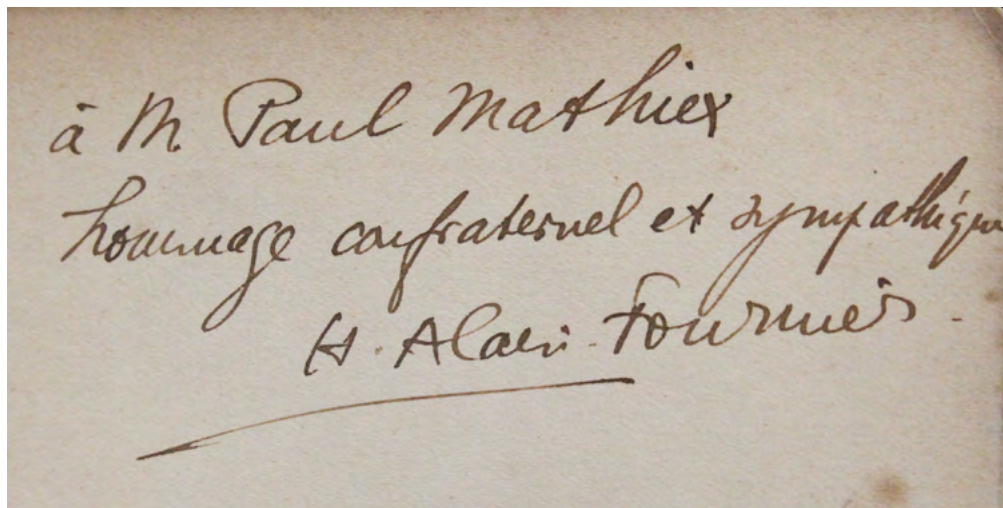 à M. Paul Mathiex
hommage confraternel et sympathique
H. Alain-Fournier.